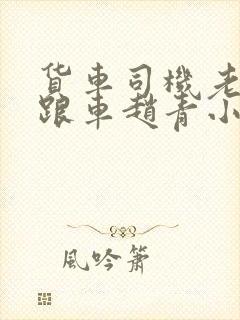 貨車司機老
跟車趙青小
風吟簫